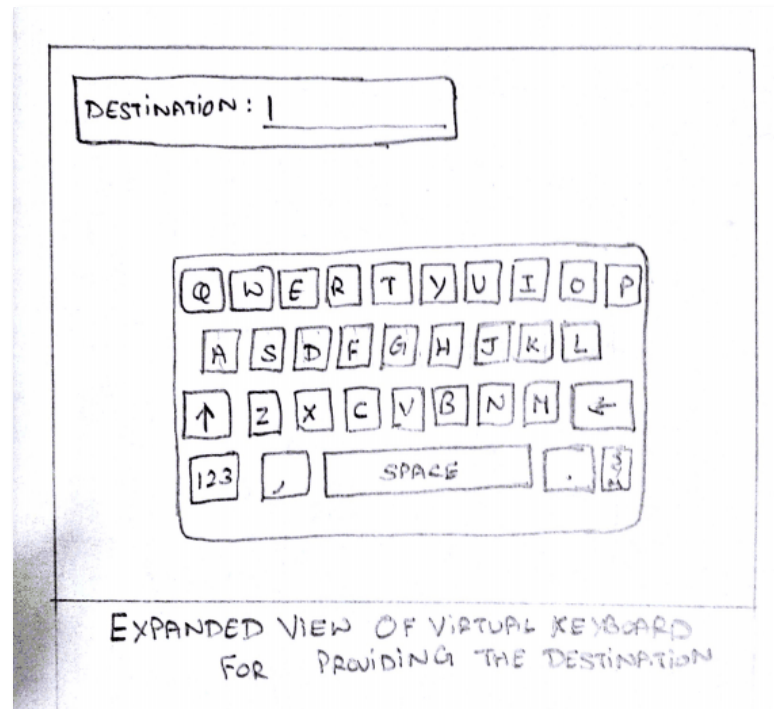 DESTINATION: |
Q W E R T Y U I O P
A S D F G H J K L
↑ Z X C V B N M ←
123 , SPACE . SYM
EXPANDED VIEW OF VIRTUAL KEYBOARD
FOR PROVIDING THE DESTINATION